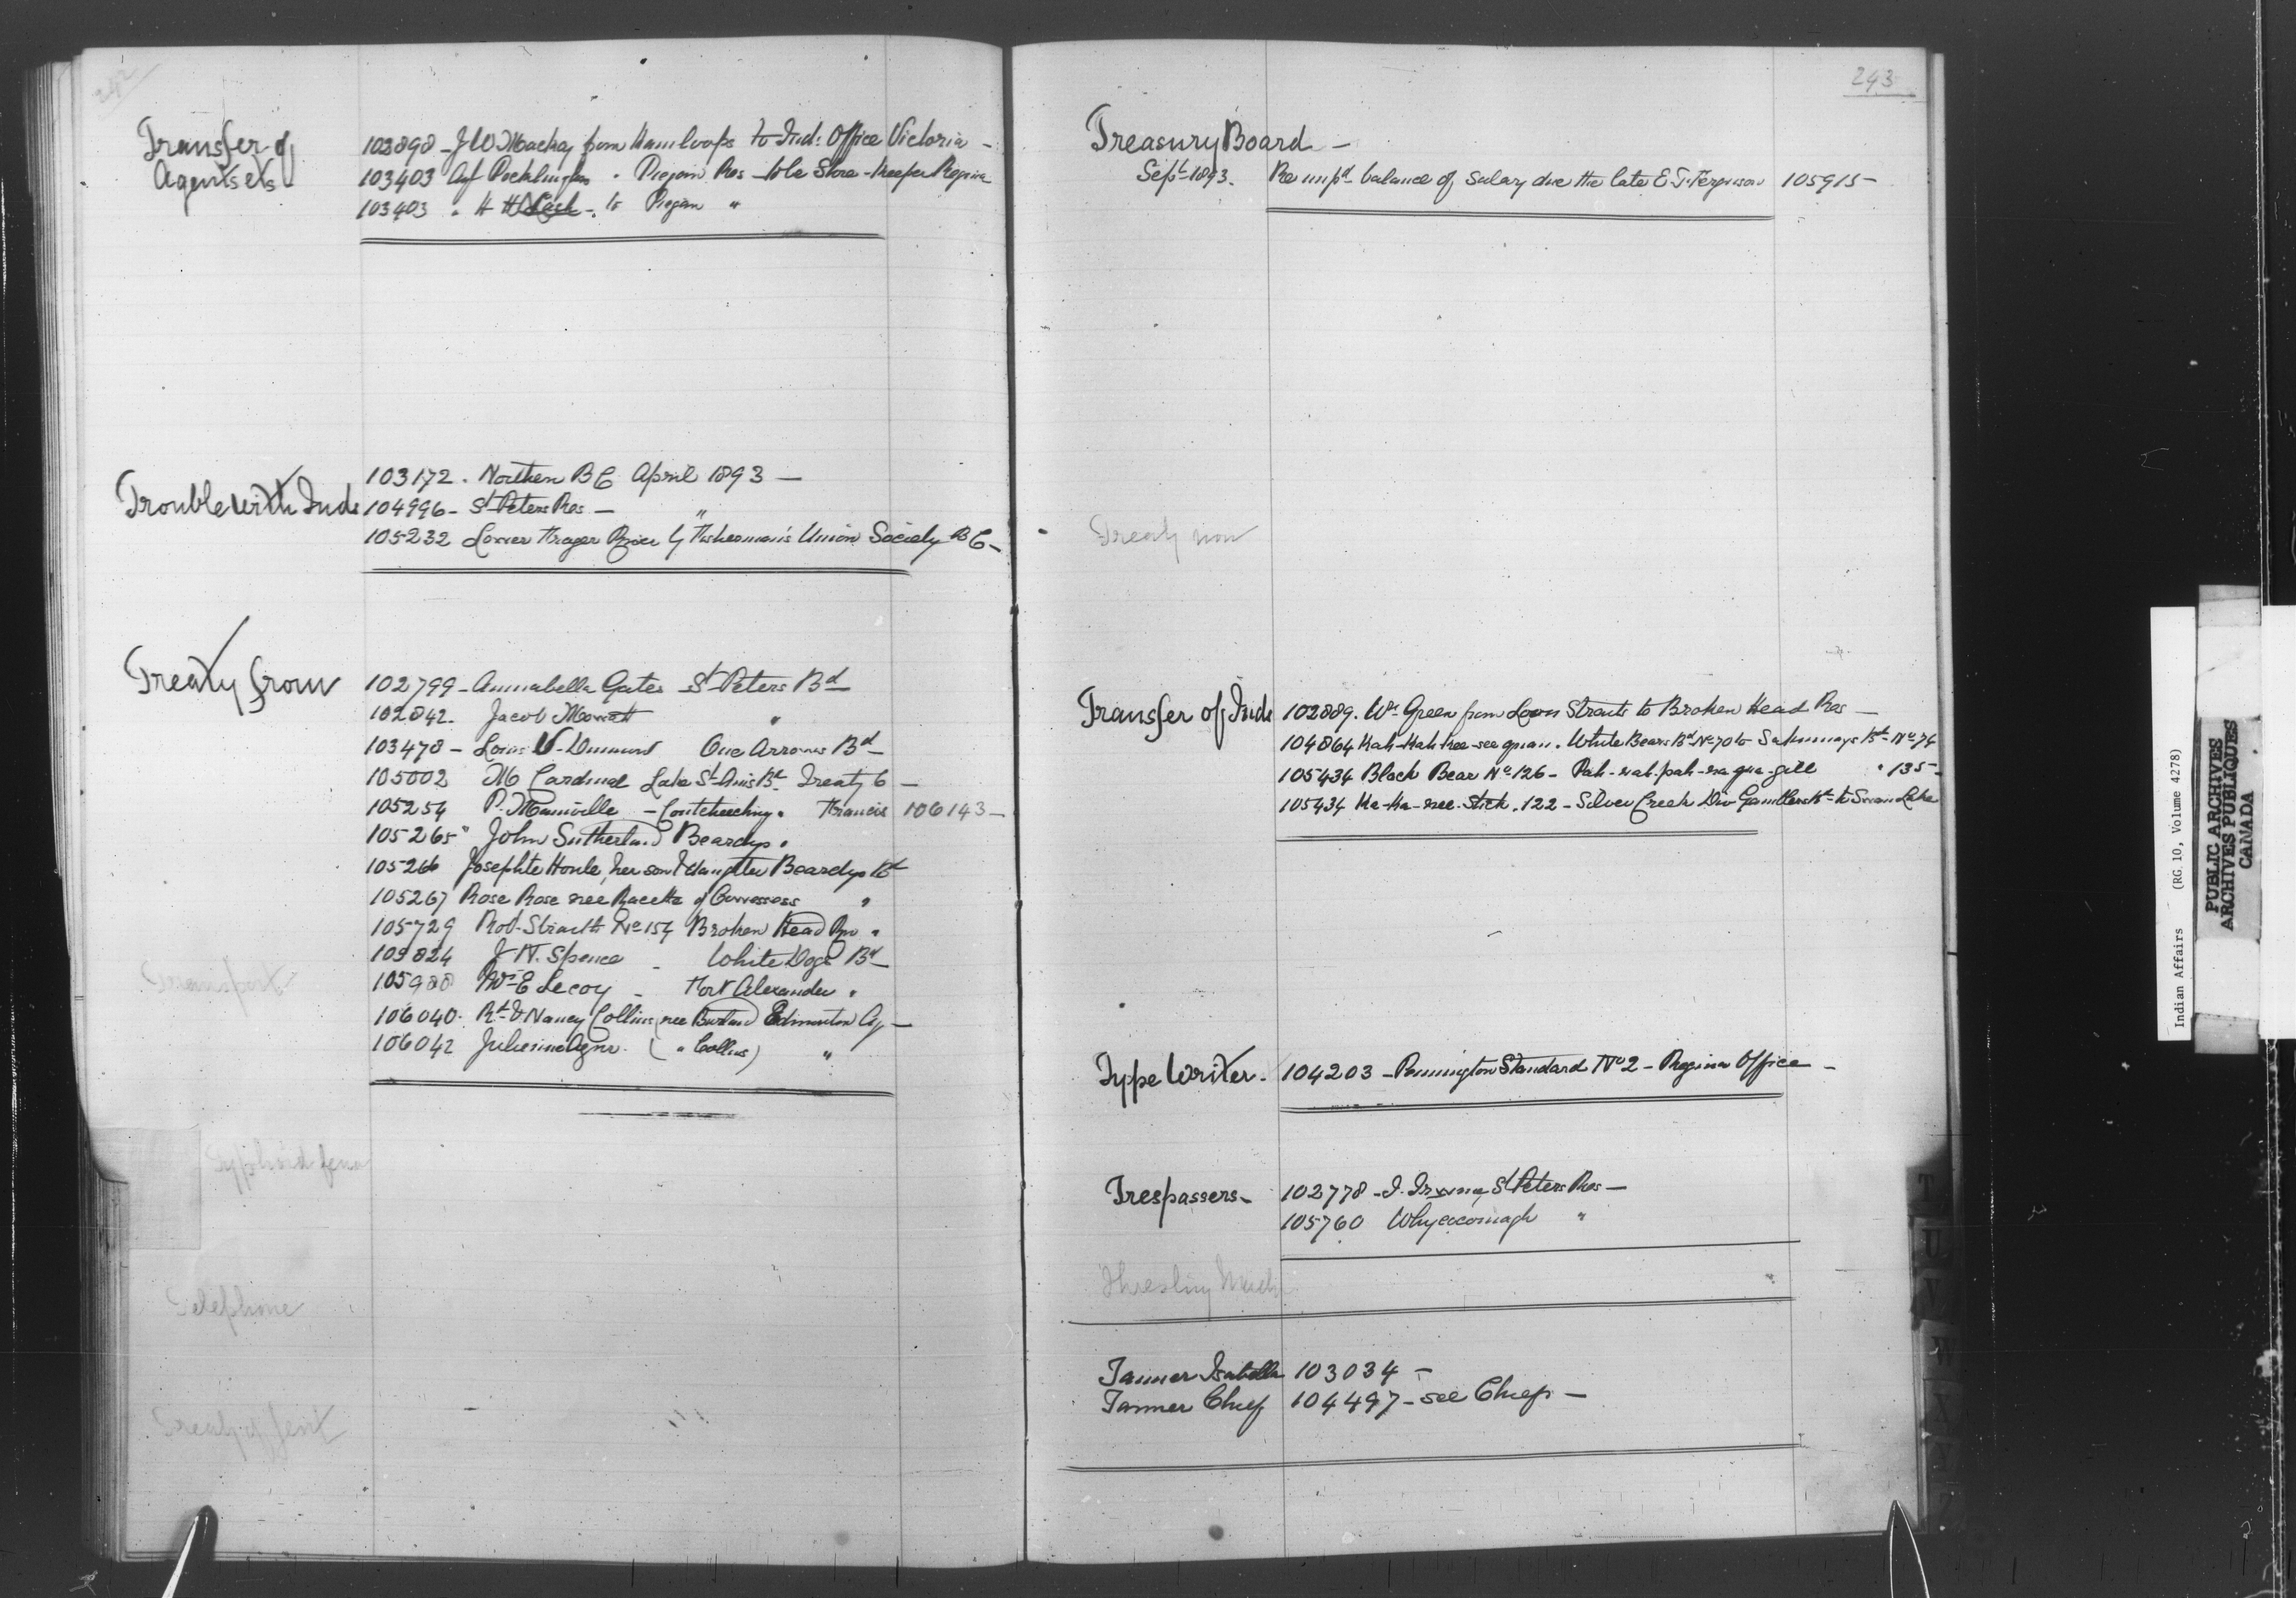 242
Transfer of
Agents etc
102898 - J W Mackay from Kamloops to Ind: Office Victoria -
103403 Agt Pocklington " Piegan Res - to be Store-Keeper Regina
103403 " H H Nash - to Piegan "
Trouble with Inds
103172 . Northern B C April 1893 -
104996 - St Peters Res - "
105232 Lower Frazer River by Fisherman's Union Society B C -
Treaty from
102799 - Annabella Gates St Peters Bd -
102842 . Jacob Mowatt "
103478 - Louis V. Dumont One Arrows Bd -
105002 M Cardinal Lake St Anns Bd Treaty 6 -
105254 P. Mainville - Coutcheeching " Francis 106143 -
105265 " John Sutherland Beardys "
105266 Josephte Houle, her son & daughter Beardys Bd
105267 Rose Rose nee Racette of "
105729 Robt Sinclair No 154 Broken Head Rvr "
105824 J N. Spence - White Dogs Bd -
105988 Wm E Lecoy - Fort Alexander "
106040 . Rt & Nancy Collins (nee ) Edmonton Agy -
106042 Julienne Agnr . ( " Collins) "
Typhoid fever
Telephone
Treaty off
243
Treasury Board -
Sept 1893. Re unpd balance of Salary due the late E. J. Ferguson 105915 -
Treaty now
Transfer of Inds
102889 . Wm Green from Loon Straits to Broken Head Res -
104864 Kah-Kah-kee-see-quan . White Bears Bd No 70 to Sakimays Bd No 74
105434 Black Bear No 126 - Pah-wah-pah-wa-qua-gill " 135 -
105434 Ka-Ka-nee-Stick . 122 - Silver Creek Div Gamblers Bd to Swan Lake
Type Writer - 104203 - Remington Standard No 2 - Regina Office -
Trespassers - 102778 - St Peters Res -
105760 Whycocomagh "
Threshing Mach
Tanner Isabella 103034 -
Tanner Chief 104497 - see Chiefs -
T
U
V
W
X
Y
Z
Indian Affairs (RG 10, Volume 4278)
PUBLIC ARCHIVES
ARCHIVES PUBLIQUES
CANADA